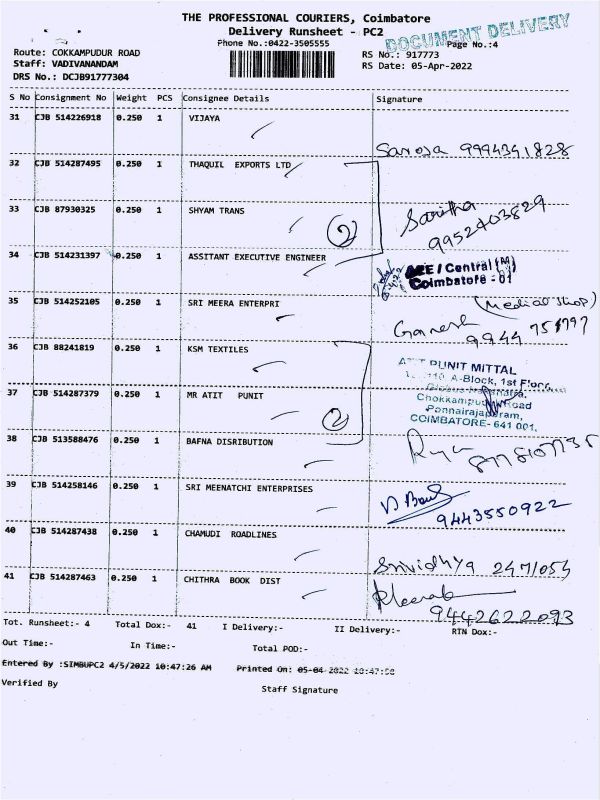 THE PROFESSIONAL COURIERS, Coimbatore
Delivery Runsheet - PC2
Phone No.:0422-3505555
DOCUMENT DELIVERY
Page No.:4
Route: COKKAMPUDUR ROAD
RS No.: 917773
Staff: VADIVANANDAM
RS Date: 05-Apr-2022
DRS No.: DCJB91777304
S No Consignment No Weight PCS Consignee Details Signature
31 CJB 514226918 0.250 1 VIJAYA
Saroja 9994341828
32 CJB 514287495 0.250 1 THAQUIL EXPORTS LTD
33 CJB 87930325 0.250 1 SHYAM TRANS
2
Saritha
9952403829
34 CJB 514231397 0.250 1 ASSITANT EXECUTIVE ENGINEER
AEE / Central (M)
Coimbatore - 01
35 CJB 514252105 0.250 1 SRI MEERA ENTERPRI
(Medical Shop)
Ganesh
36 CJB 88241819 0.250 1 KSM TEXTILES
ATIT PUNIT MITTAL
A-Block, 1st Floor,
37 CJB 514287379 0.250 1 MR ATIT PUNIT
Road
2
Ponnairajapuram,
COIMBATORE- 641 001.
38 CJB 513588476 0.250 1 BAFNA DISRIBUTION
39 CJB 514258146 0.250 1 SRI MEENATCHI ENTERPRISES
9443550922
40 CJB 514287438 0.250 1 CHAMUDI ROADLINES
Srividhya 2471054
41 CJB 514287463 0.250 1 CHITHRA BOOK DIST
9442622093
Tot. Runsheet:- 4 Total Dox:- 41 I Delivery:- II Delivery:- RTN Dox:-
Out Time:- In Time:- Total POD:-
Entered By :SIMBUPC2 4/5/2022 10:47:26 AM Printed On: 05-04-2022 10:47:58
Verified By
Staff Signature